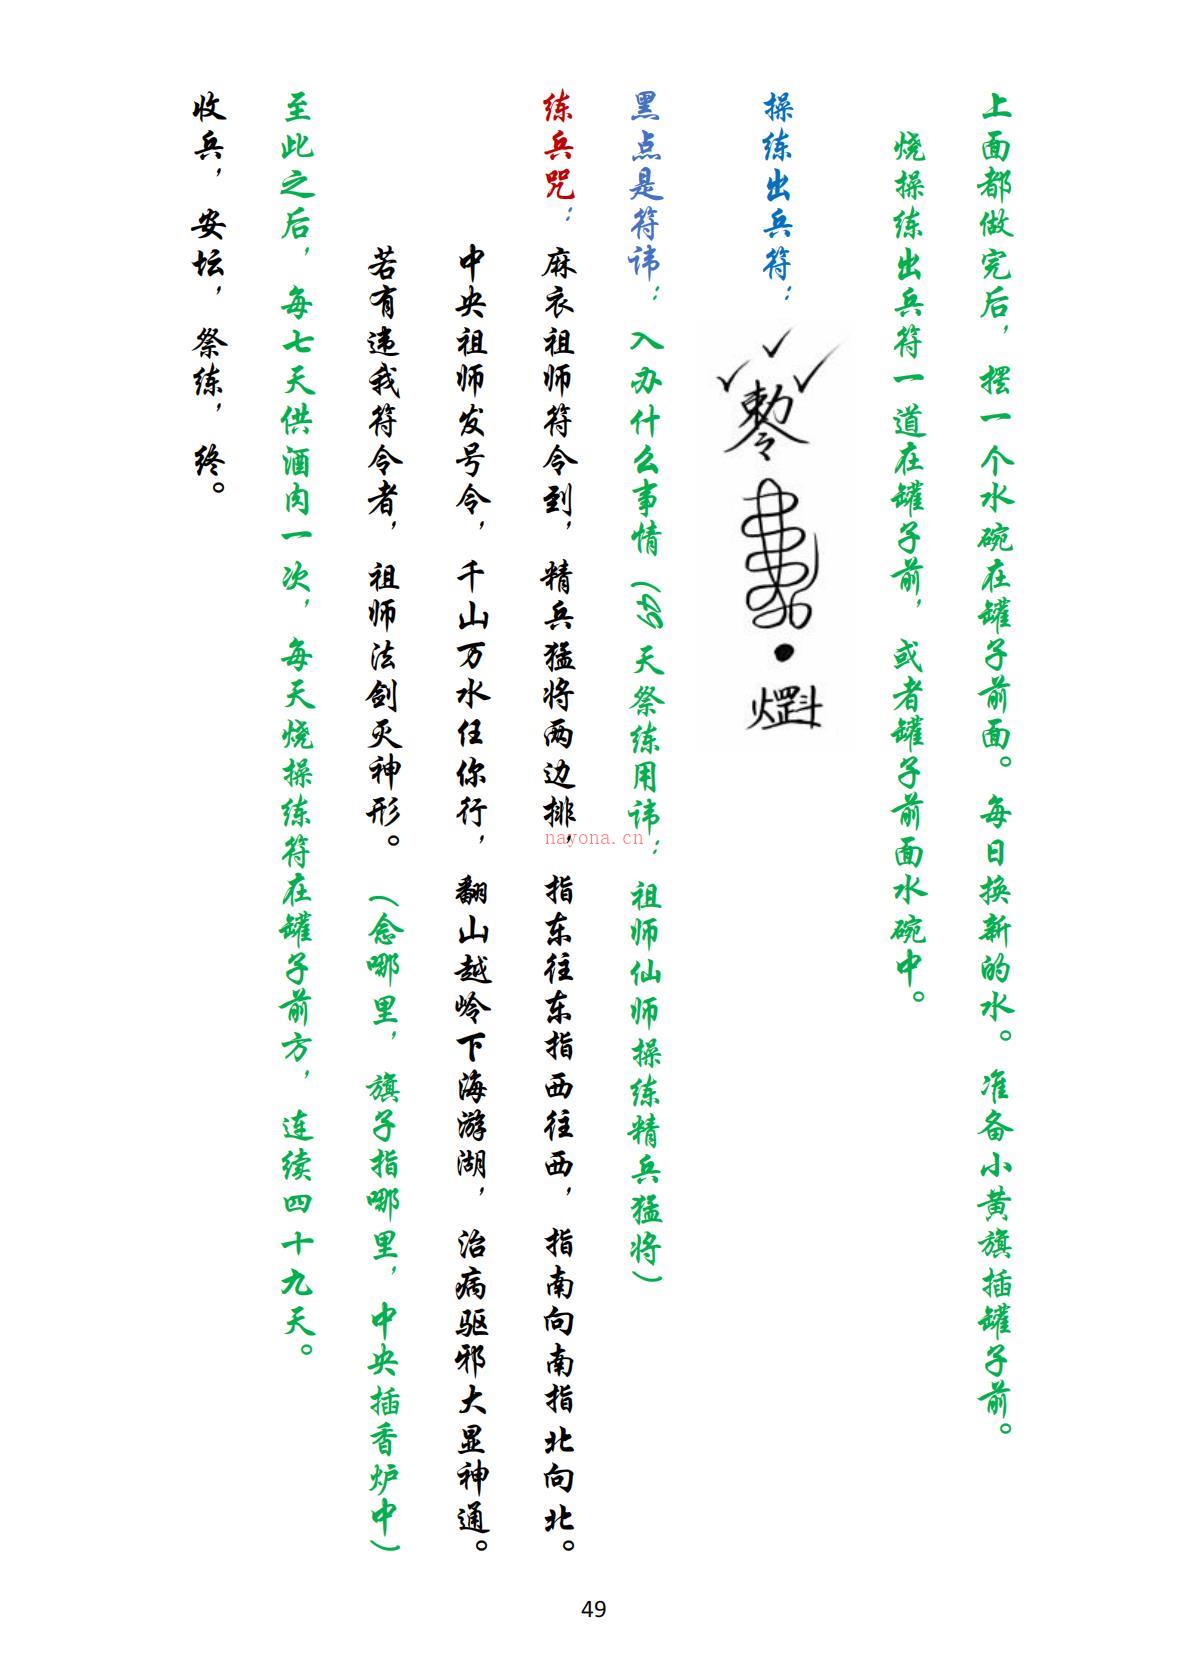 上面都做完后，摆一个水碗在罐子前面。每日换新的水。准备小黄旗插罐子前。
烧操练出兵符一道在罐子前，或者罐子前面水碗中。
操练出兵符：
黑点是符讳：入办什么事情（49天祭练用讳：祖师仙师操练精兵猛将）
练兵咒：麻衣祖师符令到，精兵猛将两边排，指东往东指西往西，指南向南指北向北。
中央祖师发号令，千山万水任你行，翻山越岭下海游湖，治病驱邪大显神通。
若有违我符令者，祖师法剑灭神形。（念哪里，旗子指哪里，中央插香炉中）
至此之后，每七天供酒肉一次，每天烧操练符在罐子前方，连续四十九天。
收兵，安坛，祭练，终。
nayona.cn
49